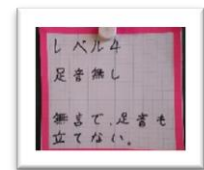 レベル4
足音無し
無言で、足音も
立てない。